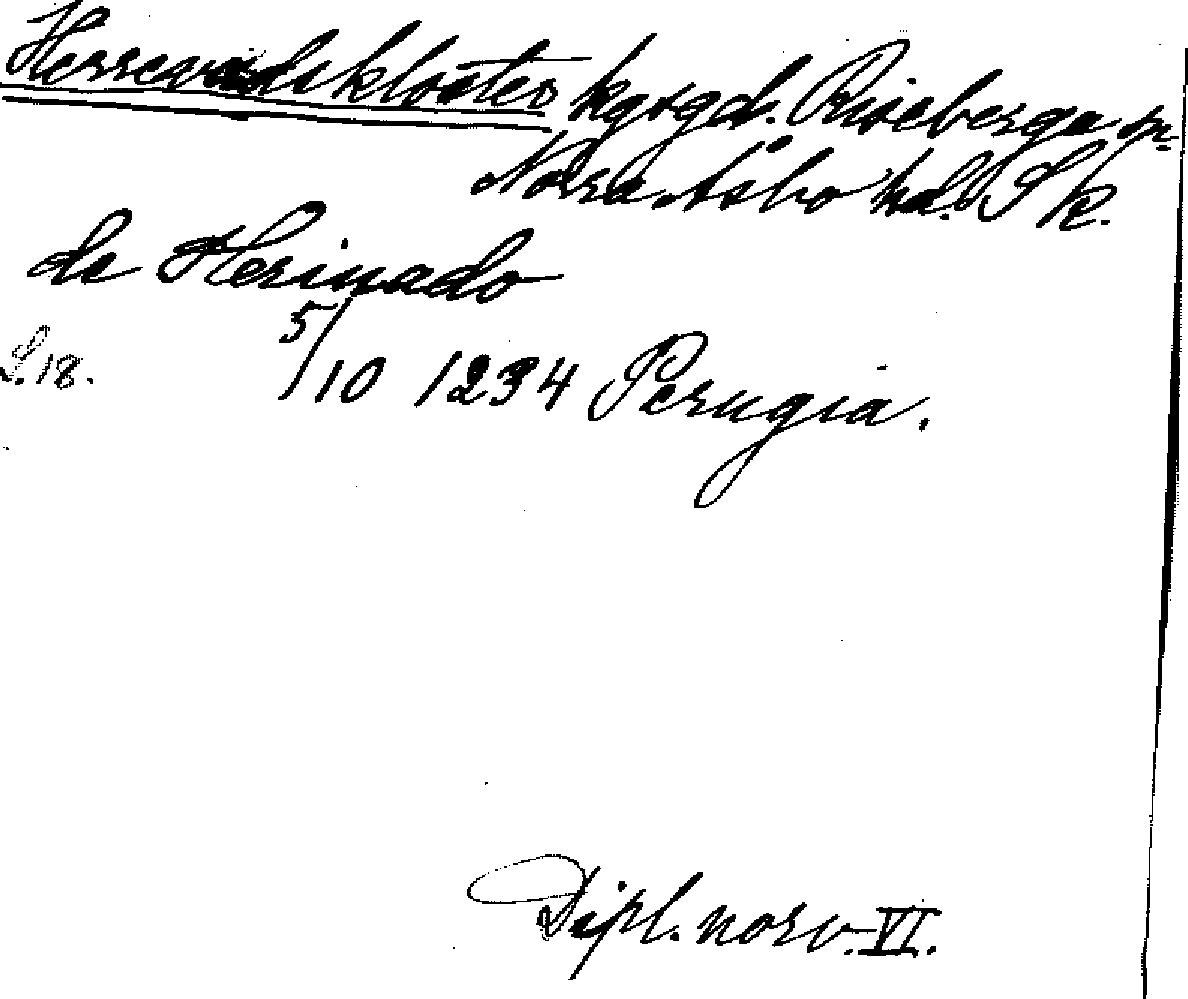 Herrevadskloster kgsgd. Riseberga sn.
Norra Åsbo hd. Sk.
de Herivado
S.18. 5/10 1234 Perugia.
Dipl. norv. VI.